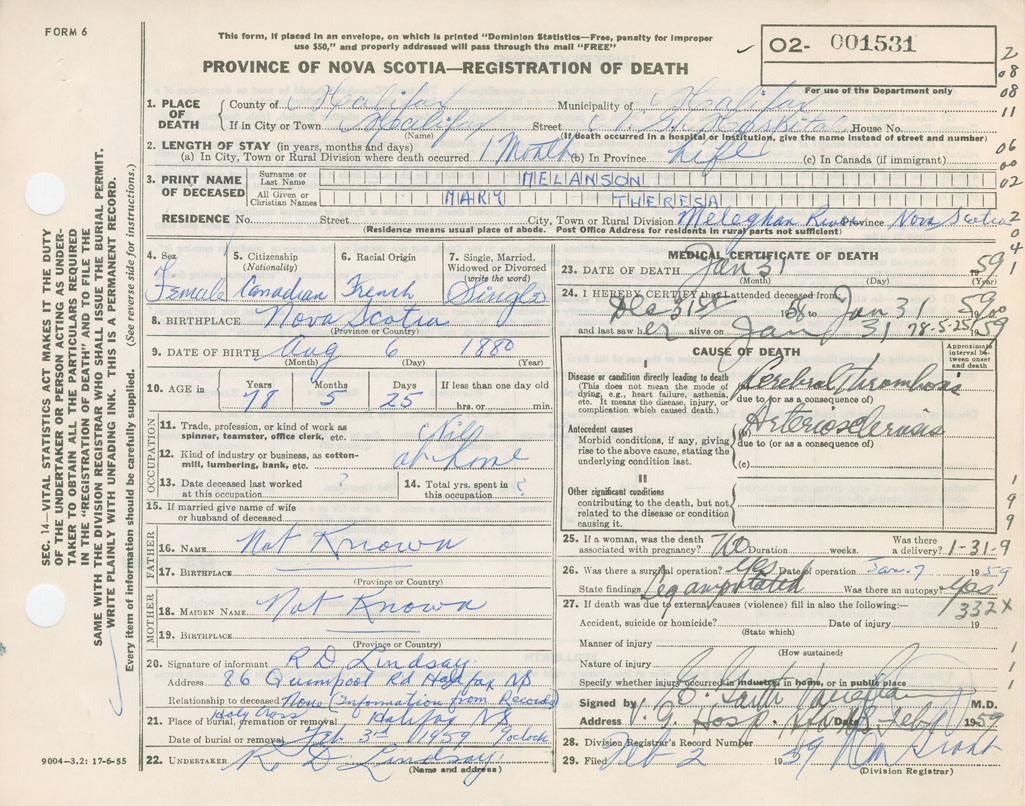 FORM 6
This form, if placed in an envelope, on which is printed "Dominion Statistics—Free, penalty for improper
use $50," and properly addressed will pass through the mail "FREE"
O2- 001531
PROVINCE OF NOVA SCOTIA—REGISTRATION OF DEATH
For use of the Department only
2
08
08
11
06
00
02
2
0
4
1
1. PLACE OF DEATH
County of Halifax Municipality of Halifax
If in City or Town Halifax Street V. G. Hospital House No.
(Name) (If death occurred in a hospital or institution, give the name instead of street and number)
2. LENGTH OF STAY (in years, months and days)
(a) In City, Town or Rural Division where death occurred 1 Month (b) In Province Life (c) In Canada (if immigrant)
3. PRINT NAME OF DECEASED
Surname or Last Name MELANSON
All Given or Christian Names MARY THERESA
RESIDENCE No. Street City, Town or Rural Division Meteghan River Province Nova Scotia
(Residence means usual place of abode. Post Office Address for residents in rural parts not sufficient)
4. Sex
Female
5. Citizenship (Nationality)
Canadian
6. Racial Origin
French
7. Single, Married, Widowed or Divorced (write the word)
Single
8. BIRTHPLACE Nova Scotia
(Province or Country)
9. DATE OF BIRTH Aug 6 1880
(Month) (Day) (Year)
10. AGE in Years Months Days If less than one day old
78 5 25 hrs. or min.
OCCUPATION
11. Trade, profession, or kind of work as spinner, teamster, office clerk, etc. Nill
12. Kind of industry or business, as cotton-mill, lumbering, bank, etc. at home
13. Date deceased last worked at this occupation ?
14. Total yrs. spent in this occupation ?
15. If married give name of wife or husband of deceased
FATHER
16. NAME Not Known
17. BIRTHPLACE
(Province or Country)
MOTHER
18. MAIDEN NAME Not Known
19. BIRTHPLACE
(Province or Country)
20. Signature of informant R D Lindsay
Address 86 Quinpool Rd Halifax NS
Relationship to deceased None (Information from Records)
21. Place of burial, cremation or removal Holy Cross Halifax NS
Date of burial or removal Feb 3rd 1959 9 oclock
22. UNDERTAKER R. D Lindsay
(Name and address)
MEDICAL CERTIFICATE OF DEATH
23. DATE OF DEATH Jan 31 1959
(Month) (Day) (Year)
24. I HEREBY CERTIFY that I attended deceased from
Dec 31st 58 to Jan 31 59
and last saw her alive on Jan 31 78-5-25 1959
CAUSE OF DEATH
Approximate interval between onset and death
I
Disease or condition directly leading to death
(This does not mean the mode of dying, e.g., heart failure, asthenia, etc. It means the disease, injury, or complication which caused death.)
Cerebral thrombosis
due to (or as a consequence of)
Antecedent causes
Morbid conditions, if any, giving rise to the above cause, stating the underlying condition last.
(b) Arteriosclerosis
due to (or as a consequence of)
(c)
II
Other significant conditions
contributing to the death, but not related to the disease or condition causing it.
1
9
9
25. If a woman, was the death associated with pregnancy? No Duration weeks. Was there a delivery? 1-31-9
26. Was there a surgical operation? Yes Date of operation Jan. 7 1959
State findings Leg amputated Was there an autopsy? Yes
27. If death was due to external causes (violence) fill in also the following:—
332X
Accident, suicide or homicide? Date of injury 19
(State which)
Manner of injury 1
(How sustained)
Nature of injury 1
Specify whether injury occurred in industry, in home, or in public place 1
Signed by M.D.
Address V. G. Hosp. Hfx Date Feb 1959
28. Division Registrar's Record Number
29. Filed Feb 2 59 Wm Grant
(Division Registrar)
SEC. 14—VITAL STATISTICS ACT MAKES IT THE DUTY
OF THE UNDERTAKER OR PERSON ACTING AS UNDER-
TAKER TO OBTAIN ALL THE PARTICULARS REQUIRED
IN THE "REGISTRATION OF DEATH" AND TO FILE THE
SAME WITH THE DIVISION REGISTRAR WHO SHALL ISSUE THE BURIAL PERMIT.
WRITE PLAINLY WITH UNFADING INK. THIS IS A PERMANENT RECORD.
Every item of information should be carefully supplied. (See reverse side for instructions.)
9004-3.2: 17-6-55